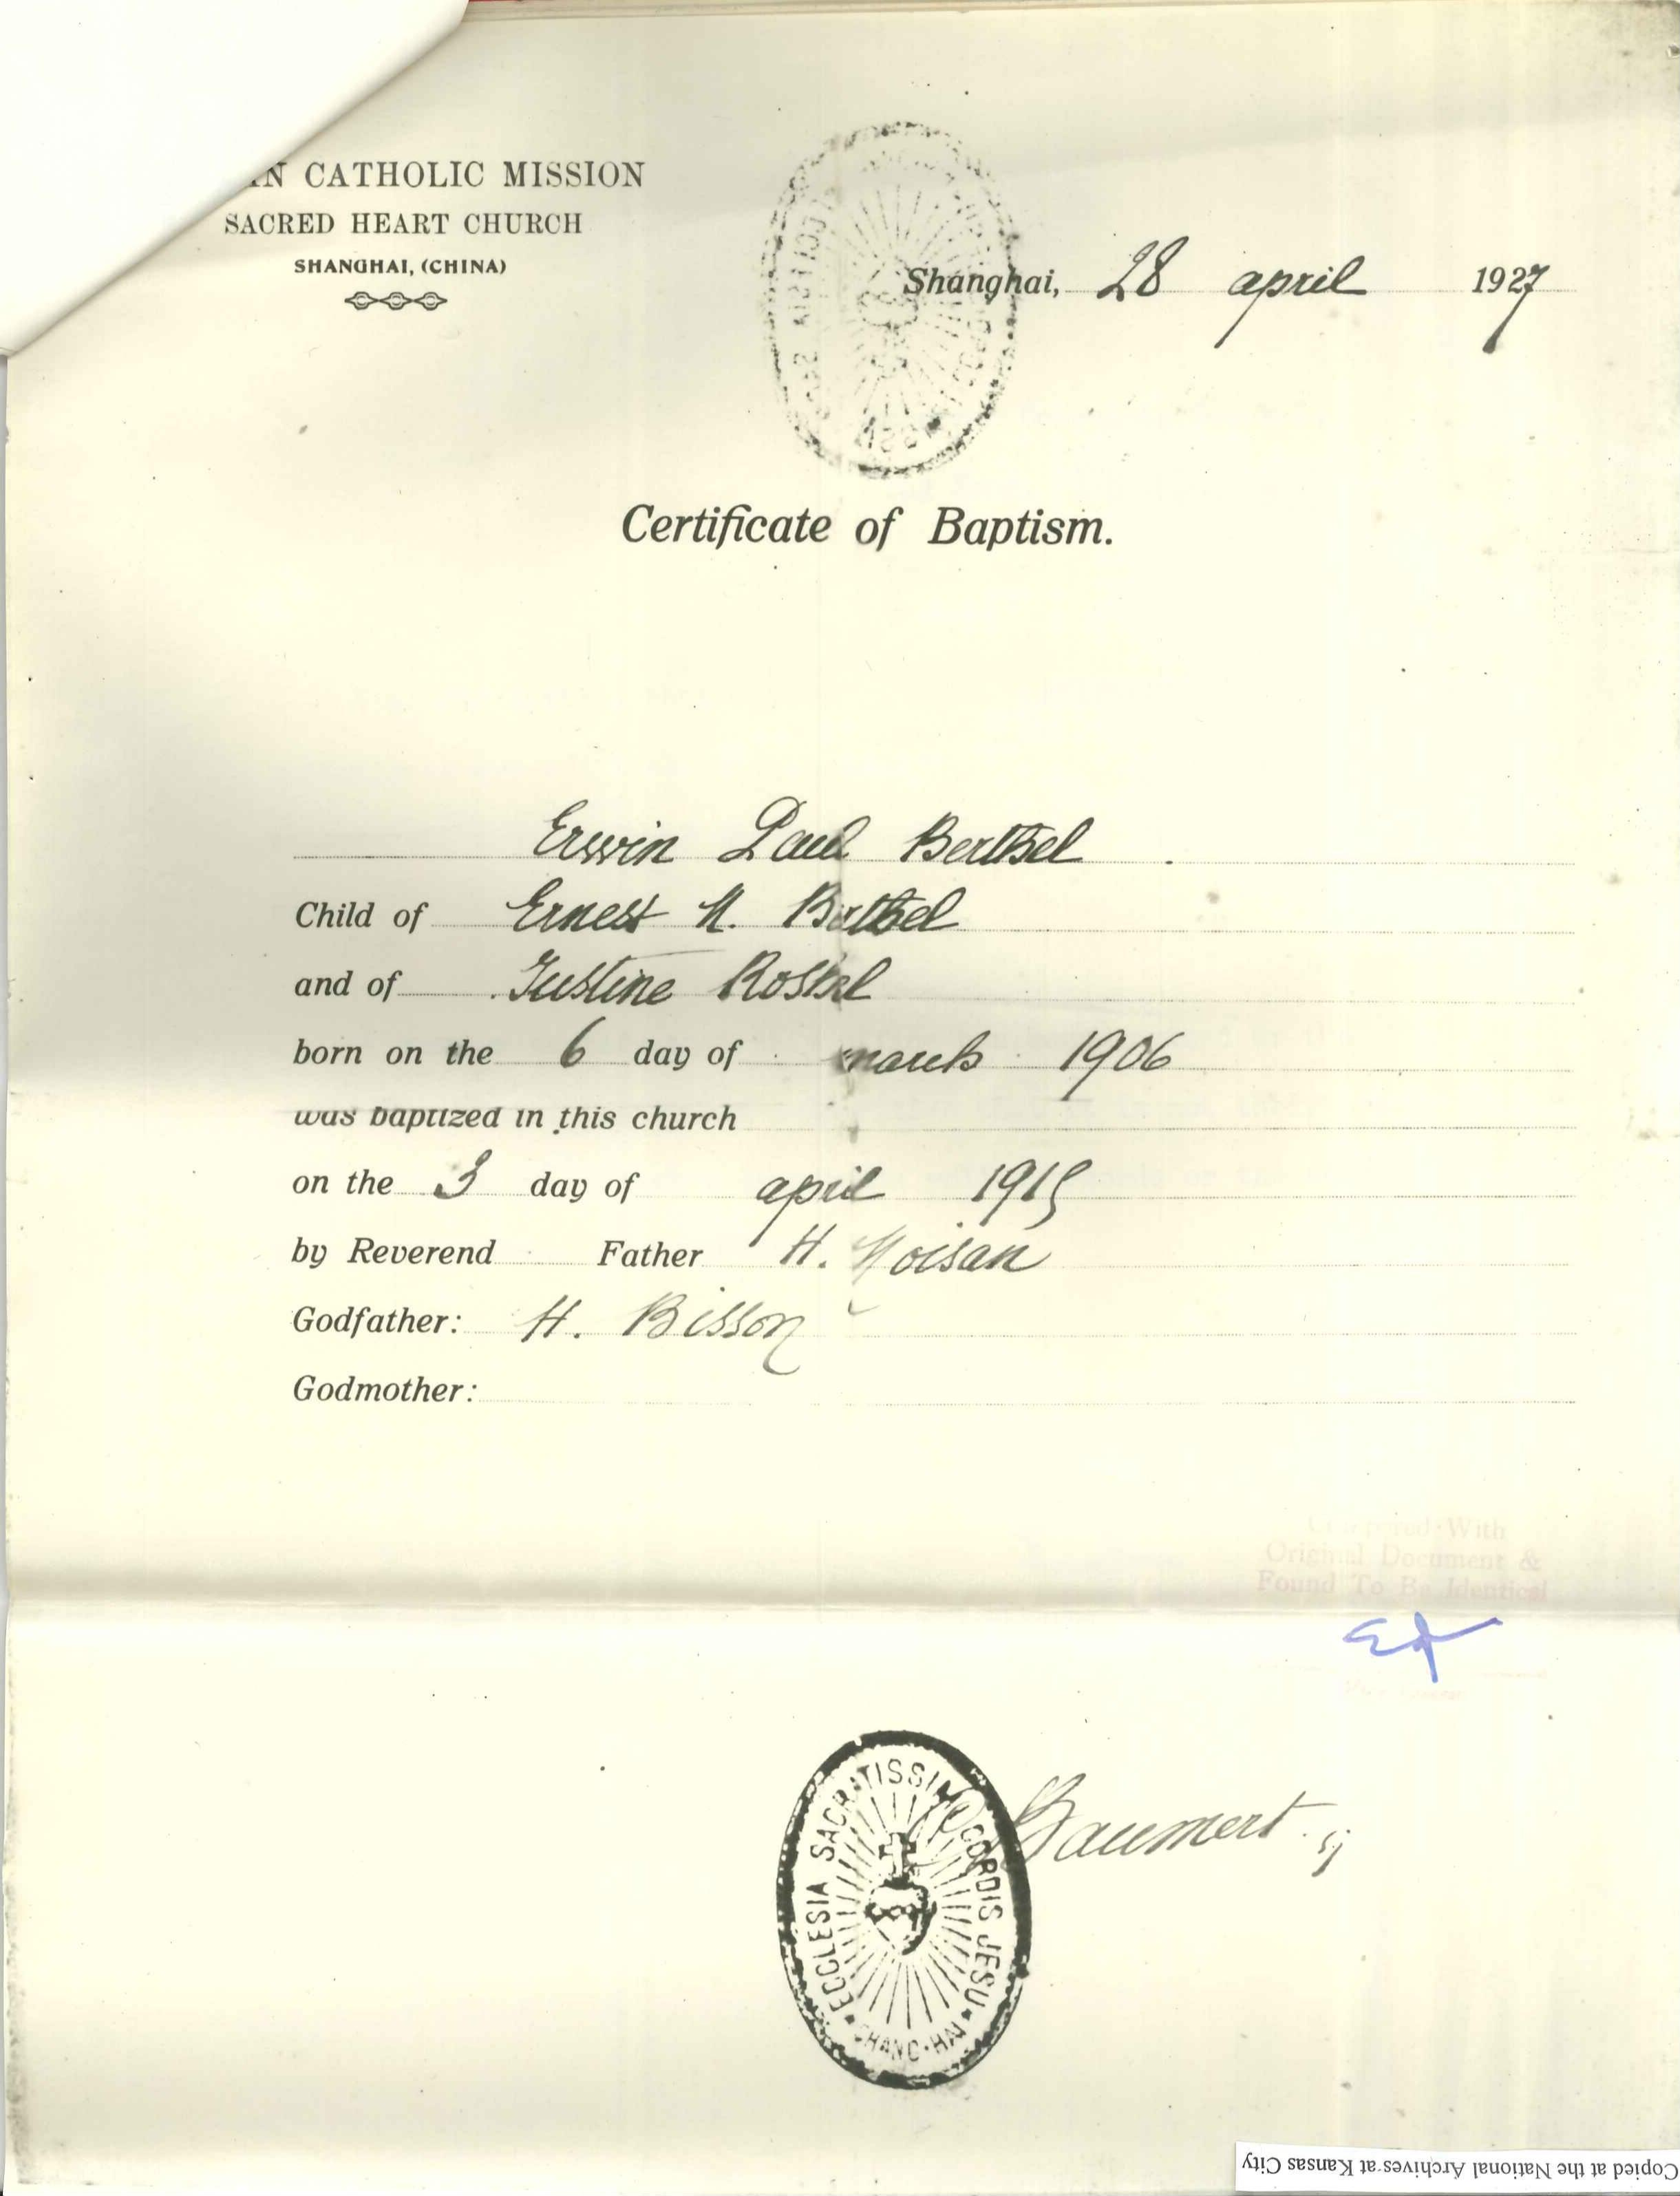 IN CATHOLIC MISSION
SACRED HEART CHURCH
SHANGHAI, (CHINA)
Shanghai, 28 april 1927
Certificate of Baptism.
Erwin Paul Berthel
Child of Ernest M. Berthel
and of Justine Roskel
born on the 6 day of march 1906
was baptized in this church
on the 3 day of april 1915
by Reverend Father H. Moisan
Godfather: H. Bisson
Godmother:
With
Original Document &
Found To Be Identical
ECCLESIA SACRATISSIMI CORDIS JESU
CHANG-HAI
Gaumert. sj
Copied at the National Archives at Kansas City